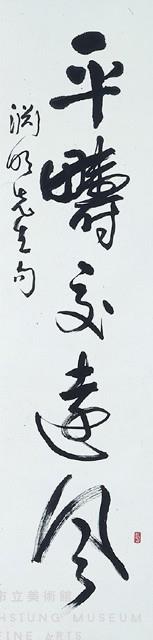 平疇交遠風
淵明先生句
市立美術館
HSIUNG MUSEUM
FINE ARTS